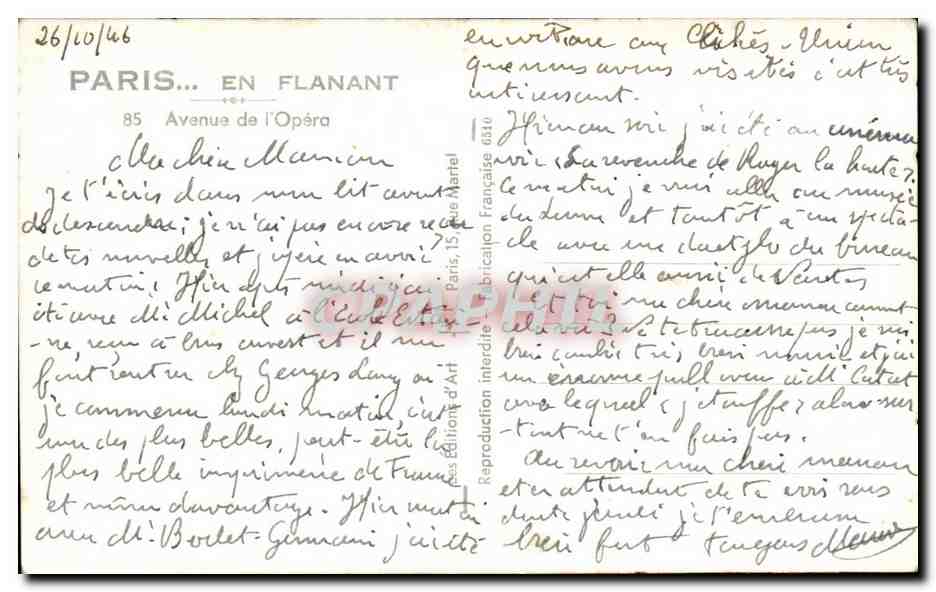 26/10/46
PARIS... EN FLANANT
85 Avenue de l'Opéra
Ma chère Maman
Je t'écris dans mon lit avant
de descendre; je n'ai pas encore reçu
de tes nouvelles et j'espère en avoir
ce matin. Hier après midi j'ai
été avec Mr Michel à l'école Estien-
-ne, reçu à bras ouvert et il me
font rentrer chez Georges Lang où
je commence lundi matin, c'est
une des plus belles, peut-être la
plus belle imprimerie de France
et même davantage. Hier matin
avec Mr Bodet-Germain j'ai été
en visite aux Clichés-Union
que nous avons visités c'est très
intéressant.
Hier au soir j'ai été au cinéma
voir (La revenche de Roger la honte)
Ce matin je vais aller au musée
du Louvre et tantôt à un specta-
cle avec une du bureau
qui est elle aussi de
et toi ma chère maman comment
cela va? Ne te tracasse pas, je suis
bien couché très bien nourri et j'ai
un énorme pull over à Mr
avec lequel (j'étouffe) alors sur-
-tout ne t'en fais pas.
Au revoir ma chère maman
et en attendant de te voir sans
doute jeudi je t'embrasse
bien fort toujours
Les Editions d'Art Paris, 15, rue Martel
Reproduction interdite Fabrication Française 6510
CPAPHIL